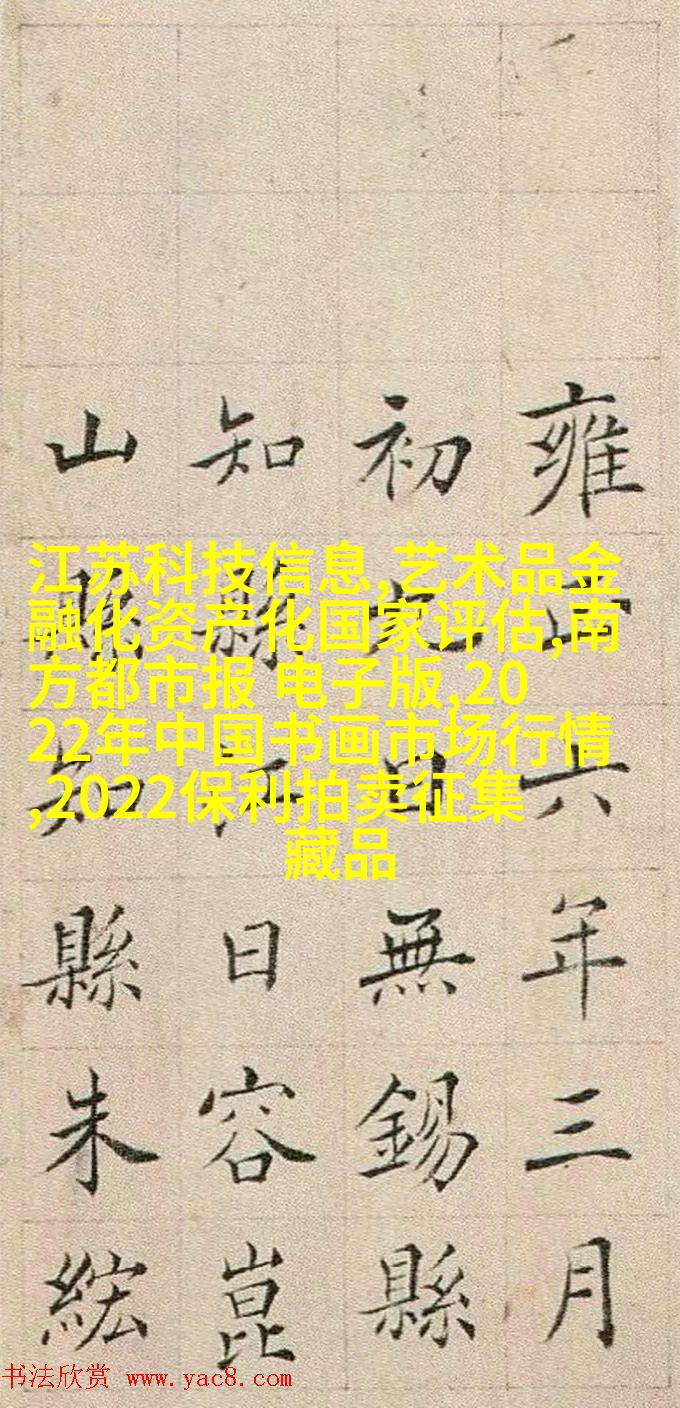 雍正六年三月
初無錫縣
知縣江日容崑
山縣知縣朱綋
江苏科技信息,艺术品金
融化资产化国家评估,南
方都市报 电子版,20
22年中国书画市场行情
,2022保利拍卖征集
藏品
书法欣赏 www.yac8.com